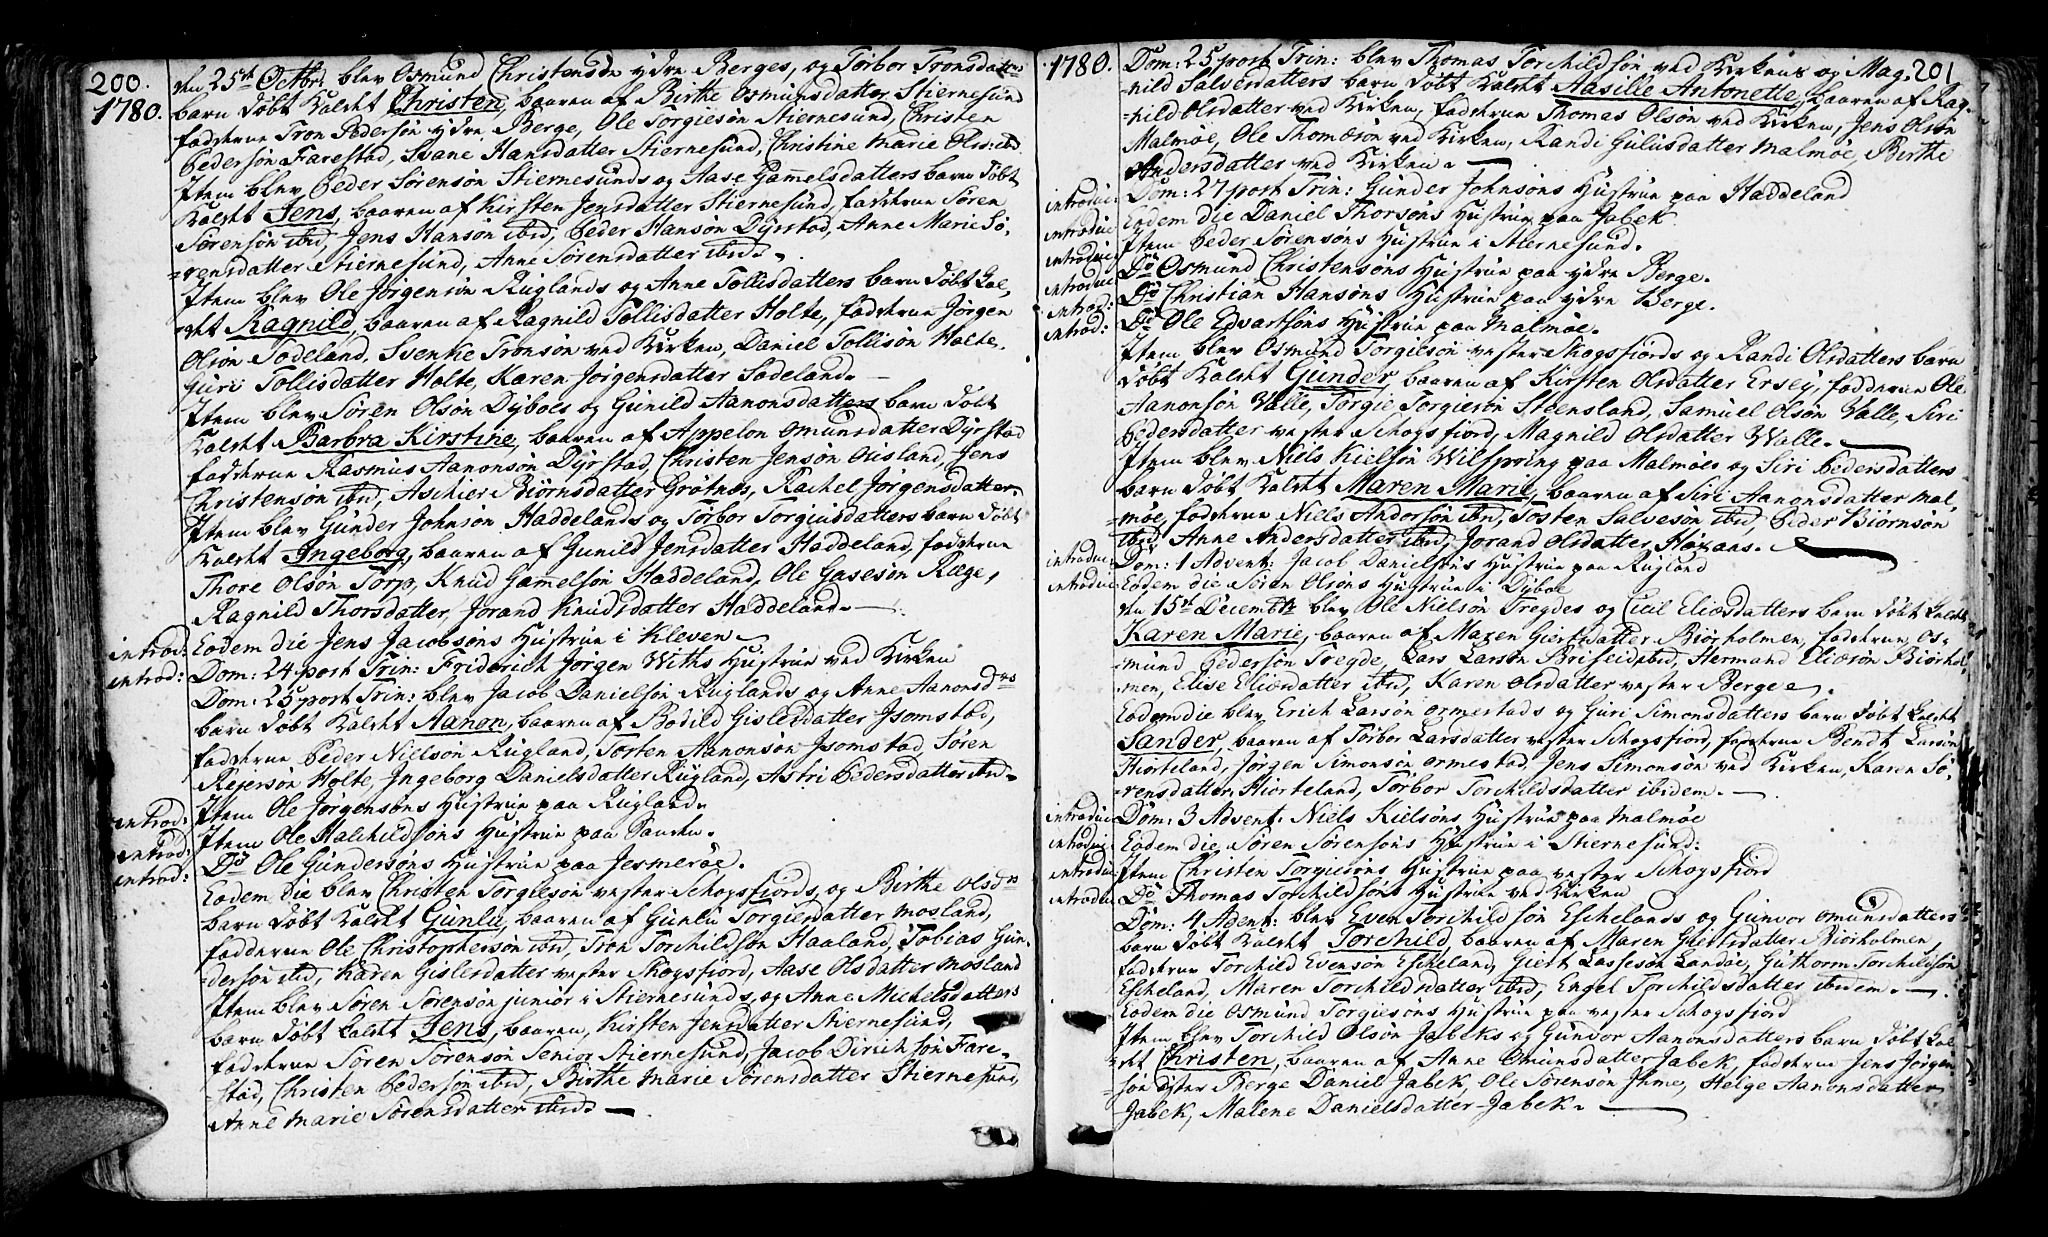 200.
1780.
den 25de Octbr: blev Osmund Christensøn ydre Berges, og Torbor Tronsdatters
barn døbt kaldet Christen, baaren af Birthe Osmunsdatter Stiernesund
fadderne Tron Pedersøn ydre Berge, Ole Torgiesøn Stiernesund, Christen
Pedersøn Farestad, Svane Hansdatter Stiernesund, Christine Marie Olsd: ibd
Item blev Peder Sørensøn Stiernesunds og Aase Gamelsdatters barn døbt
kaldet Jens, baaren af Kirsten Jensdatter Stiernesund, fadderne Søren
Sørensøn ibid, Jens Hansøn ibid, Peder Hansøn Dyrstad, Anne Marie Sø-
-rensdatter Stiernesund, Anne Sørensdatter ibid.
Item blev Ole Jørgensøn Ruglands og Anne Tollisdatters barn døbt kal-
-det Ragnild, baaren af Ragnild Tollisdatter Holte, fadderne Jørgen
Olsøn Sodeland, Svenke Tronsøn ved Kirken, Daniel Tollisøn Holte,
Guri Tollisdatter Holte, Karen Jørgensdatter Sodeland.
Item blev Søren Olsøn Dyboes og Gunild Aanonsdatters barn døbt
kaldet Barbra Kirstine, baaren af Appelon Omunsdatter Dyrstad
fadderne Rasmus Aanonsøn Dyrstad, Christen Jensøn Ousland, Jens
Christensøn ibid, Aschier Biørnsdatter Grøtnes, Rachel Jørgensdatter.
Item blev Gunder Johnsøn Haddelands og Torbor Torgiusdatters barn døbt
kaldet Ingeborg, baaren af Gunild Jensdatter Haddeland, fadderne
Thore Olsøn Torp, Knud Gamelsøn Haddeland, Ole Gasesøn Ræge,
Ragnild Thorsdatter, Jorand Knudsdatter Haddeland.
introd: Eodem die Jens Jacobsøns Hustrue i Kleven
introd: Dom: 24 post Trin: Friderich Jørgen Withs Hustrue ved Kirken
Dom: 25 post Trin: blev Jacob Danielsøn Ruglands og Anne Aanonsdrs
barn døbt kaldet Aanon, baaren af Bodild Gislesdatter Isomstad,
fadderne Peder Nielsøn Rugland, Tosten Aanonsøn Isomstad, Søren
Rejersøn Holte, Ingeborg Danielsdatter Rugland, Astri Pedersdatter ibid
introd: Item Ole Jørgensøns Hustrue paa Rugland.
introd: Item Ole Halchildsøns Hustrue paa Sanden.
introd: Do Ole Gundersøns Hustrue paa Jesmerøe.
Eodem die blev Christen Torgiesøn vester Schogsfiords, og Birthe Olsdrs
barn døbt kaldet Gunlu, baaren af Gunlu Torgiesdatter Mosland,
fadderne Ole Christophersøn ibid, Tron Torchildsøn Haaland, Tobias Gun-
-dersøn ibid, Karen Gislesdatter vester Skogsfiord, Aase Olsdatter Mosland
Item blev Søren Sørensøn junior i Stiernesunds, og Anne Michelsdatters
barn døbt kaldet Jens, baaren, Kirsten Jensdatter Stiernesund,
fadderne Søren Sørensøn Senior Stiernesund, Jacob Dirichsøn Fare-
-stad, Christen Pedersøn ibid, Birthe Marie Sørensdatter Stiernesund,
Anne Marie Sørensdatter ibid.
201
1780.
Dom: 25 post Trin: blev Thomas Torchildsøn ved Kirkens og Mag-
-nild Salvesdatters barn døbt kaldet Aasille Antonette, baaren af Rag-
-nild Olsdatter ved Kirken, fadderne Thomas Olsøn ved Kirken, Jens Olsøn
Malmøe, Ole Thomæsøn ved Kirken, Randi Gulusdatter Malmøe, Birthe
Andersdatter ved Kirken.
introduc: Dom: 27 post Trin: Gunder Johnsøns Hustrue paa Haddeland
introduc: Eodem die Daniel Thorsøns Hustrue paa Jabek.
introduc: Item Peder Sørensøns Hustrue i Stiernesund.
introduc: Do Osmund Christensøns Hustrue paa ydre Berge.
introd: Do Christian Hansøns Hustrue paa ydre Berge.
introd: Do Ole Edvartsøns Hustrue paa Malmøe.
Item blev Osmund Torgiesøn vester Skogsfiords og Randi Olsdatters barn
døbt kaldet Gunder, baaren af Kirsten Olsdatter Ersey, fadderne Ole
Aanonsøn Valle, Torgie Torgiesøn Steensland, Samuel Olsøn Valle, Siri
Pedersdatter vester Schogsfiord, Magnild Olsdatter Walle.
Item blev Niels Kielsøn Wilspring paa Malmøes og Siri Pedersdatters
barn døbt kaldet Maren Marie, baaren af Siri Aanonsdatter Mal-
-møe, fadderne Niels Andersøn ibid, Tosten Salvesøn ibid, Peder Biørnsøn
ibid, Anne Andersdatter ibid, Jorand Olsdatter Høxaas.
introduc: Dom: 1 Advent: Jacob Danielsøns Hustrue paa Rugland
introduc: Eodem die Søren Olsøns Hustrue i Dyboe
den 15de Decembr: blev Ole Nielsøn Tregdes og Cicil Eliæsdatters barn døbt kaldet
Karen Marie, baaren af Maren Giertsdatter Biørholmen, fadderne, Os-
-mund Pedersøn Tregde, Lars Larsøn Briseid ibid, Hermand Eliæsøn Biørhol-
-men, Elise Eliæsdatter ibid, Karen Olsdatter vester Berge.
Eodem die blev Erich Larsøn Ormestads og Guri Simonsdatters barn døbt kaldet
Sander, baaren af Torbor Larsdatter vester Schogsfiord, fadderne Bendt Larsøn
Hiorteland, Jørgen Simonsøn Ormestad, Jens Simonsøn ved Kirken, Karen Sø-
-rensdatter Hiorteland, Torbor Torchildsdatter ibidem.
introduc: Dom: 3 Advent: Niels Kielsøns Hustrue paa Malmøe
introduc: Eodem die Søren Sørensøns Hustrue i Stiernesund:
introduc: Item Christen Torgiesøns Hustrue paa vester Schogsfiord
introduc: Do Thomas Torchildsøns Hustrue ved Kirken
Dom: 4 Advent: blev Even Torchildsøn Eschelands og Gunvor Omunsdatters
barn døbt kaldet Torchild, baaren af Maren Giertsdatter Biørholmen,
fadderne Torchild Evensøn Escheland, Giert Lassesøn Landøe, Guthorm Torchildsøn
Escheland, Maren Torchildsdatter ibid, Engel Torchildsdatter ibidem.
Eodem die Osmund Torgiesøns Hustrue paa vester Schogsfiord
Item blev Torchild Olsøn Jabeks og Gunvor Aanonsdatters barn døbt kal-
-det Christen, baaren af Anne Omunsdatter Jabek, fadderne Jens Jørgen-
-søn ydre Berge, Daniel Jabek, Ole Sørensøn Ihme, Helge Aanonsdatter
Jabek, Malene Danielsdatter Jabek.